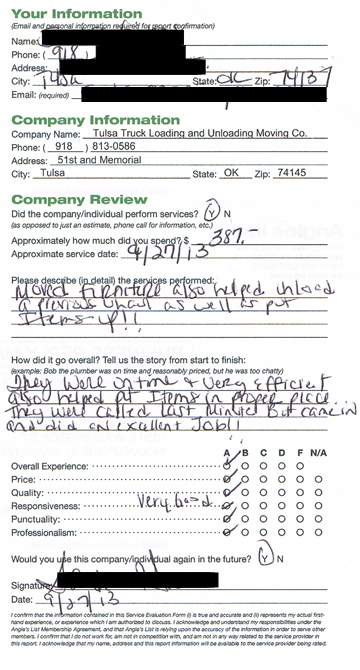 Your Information
(Email and personal information required for report confirmation)
Name:
Phone: (918)
Address:
City: Tulsa State: OK Zip: 74137
Email: (required)
Company Information
Company Name: Tulsa Truck Loading and Unloading Moving Co.
Phone: ( 918 ) 813-0586
Address: 51st and Memorial
City: Tulsa State: OK Zip: 74145
Company Review
Did the company/individual perform services? Y N
(as opposed to just an estimate, phone call for information, etc.)
Approximately how much did you spend? $ 387.-
Approximate service date: 9/27/13
Please describe (in detail) the services performed:
Moved Furniture also helped unload
a previous Uhaul as well as put
Items up!!
How did it go overall? Tell us the story from start to finish:
(example: Bob the plumber was on time and reasonably priced, but he was too chatty)
They Were on time & Very Efficient
also helped put Items in proper place.
They were called last minute But came in
and did an excellent Job!!
A B C D F N/A
Overall Experience:
Price:
Quality:
Responsiveness: very good
Punctuality:
Professionalism:
Would you use this company/individual again in the future? Y N
Signature:
Date: 9/27/13
I confirm that the information contained in this Service Evaluation Form (i) is true and accurate and (ii) represents my actual first-
hand experience, or experience which I am authorized to discuss. I acknowledge and understand my responsibilities under the
Angie's List Membership Agreement, and that Angie's List is relying upon the accuracy of the information in order to serve other
members. I confirm that I do not work for, am not in competition with, and am not in any way related to the service provider in
this report. I acknowledge that my name, address and this report information will be available to the service provider being rated.